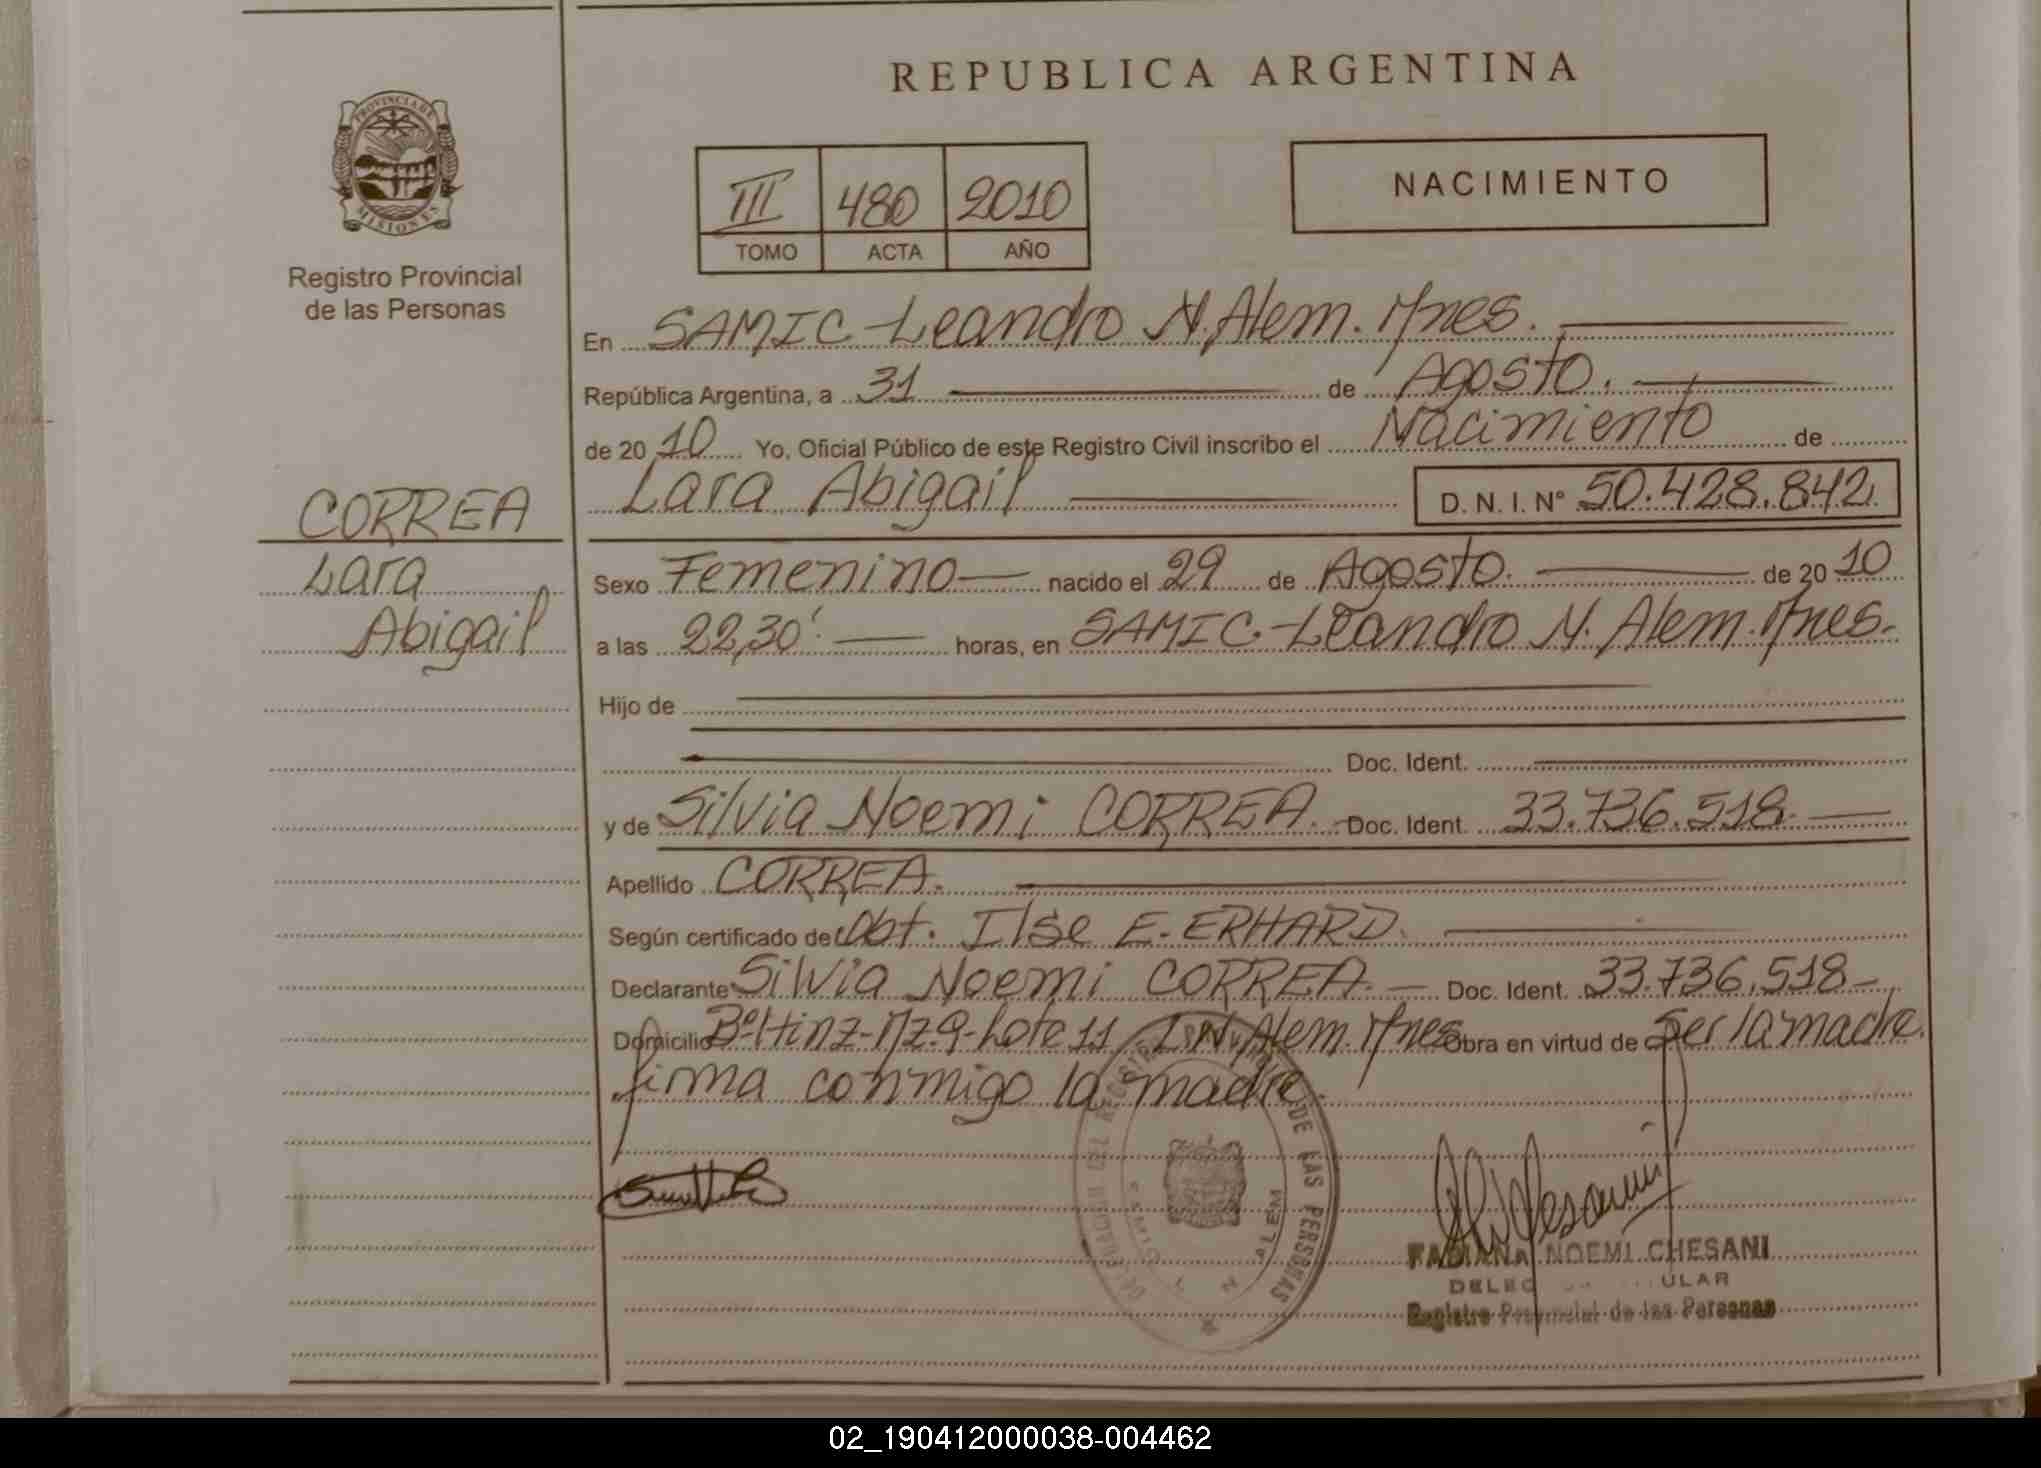 REPUBLICA ARGENTINA
PROVINCIA DE
MISIONES
Registro Provincial
de las Personas
III 480 2010
TOMO ACTA AÑO
NACIMIENTO
En SAMIC - Leandro N. Alem. Mnes.
República Argentina, a 31 de Agosto.
de 2010 Yo, Oficial Público de este Registro Civil inscribo el Nacimiento de
Lara Abigail D. N. I. Nº 50.428.842.
CORREA
Lara
Abigail
Sexo Femenino nacido el 29 de Agosto. de 2010
a las 22,30'. horas, en SAMIC - Leandro N. Alem. Mnes.
Hijo de
Doc. Ident.
y de Silvia Noemi CORREA. Doc. Ident. 33.736.518.
Apellido CORREA.
Según certificado de Obt. Ilse E. ERHARD.
Declarante Silvia Noemi CORREA. Doc. Ident. 33.736.518
Domicilio Bº Hinz - Mz. 9 - Lote 11 L. N. Alem. Mnes Obra en virtud de Ser la madre.
firma conmigo la madre.
DE LAS PERSONAS
ALEM
FABIANA NOEMI CHESANI
Registro Provincial de las Personas
02_190412000038-004462